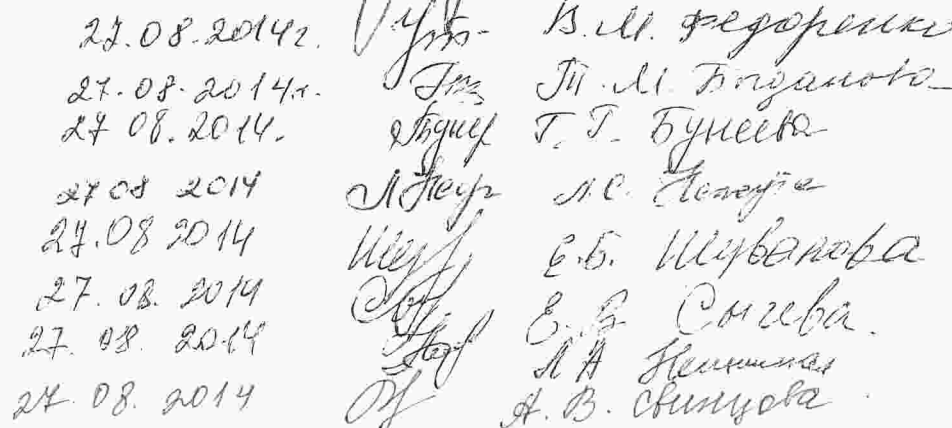 27.08.2014г. В.М. Федоренко
27.08.2014г. Т.М. Богданова
27 08.2014. Г.Г. Бунеева
27 08 2014 Л.С.
27.08 2014 Е.Б. Шуванова
27. 08. 2014 Е. В Сычева.
27. 08. 2014 Л А
27. 08. 2014 А. В. Свинцова